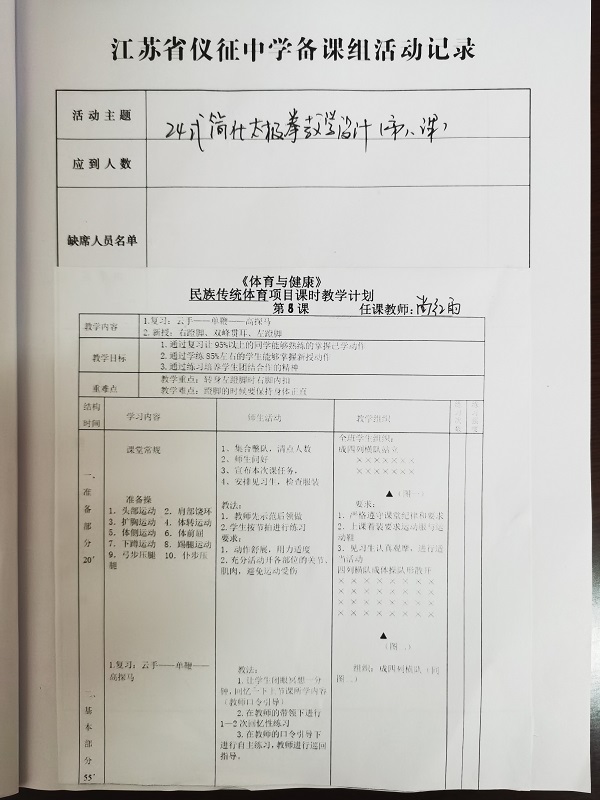 江苏省仪征中学备课组活动记录
活动主题
24式简化太极拳教学设计(第八课)
应到人数
缺席人员名单
《体育与健康》
民族传统体育项目课时教学计划
第 8 课 任课教师:尚红雨
教学内容
1.复习:云手——单鞭——高探马
2.新授:右蹬脚、双峰贯耳、左蹬脚
教学目标
1.通过复习让95%以上的同学能够熟练的掌握已学动作
2.通过学练85%左右的学生能够掌握新授动作
3.通过练习培养学生团结合作的精神
重难点
教学重点:转身左蹬脚时右脚内扣
教学难点:蹬脚的时候要保持身体正直
结构
时间
学习内容
师生活动
教学组织
一.
准
备
部
分
20'
课堂常规
准备操
1.头部运动 2.肩部绕环
3.扩胸运动 4.体转运动
5.体侧运动 6.体前屈
7.下蹲运动 8.踢腿运动
9.弓步压腿 10.仆步压
腿
1、集合整队,清点人数
2、师生问好
3、宣布本次课任务,
4、安排见习生,检查服装
教法:
1.教师先示范后领做
2.学生按节拍进行练习
要求:
1.动作舒展,用力适度
2.充分活动开各部位的关节、
肌肉,避免运动受伤
全班学生组织:
成四列横队站立
×××××××
×××××××
▲(图一)
要求:
1.严格遵守课堂纪律和要求
2.上课着装要求运动服与运
动鞋
3.见习生认真观摩,进行适
当活动
四列横队成体操队形散开
× × × × × × ×
× × × × × × ×
× × × × × × ×
× × × × × × ×
▲
(图二)
二.
基
本
部
分
55'
1.复习:云手——单鞭——
高探马
教法:
1.让学生闭眼冥想一分
钟,回忆一下上节课所学内容
(教师口令引导)
2.在教师的带领下进行
1—2次回忆性练习
3.在教师的口令引导下
进行自主练习,教师进行巡回
指导。
组织:成四列横队(同
图二)